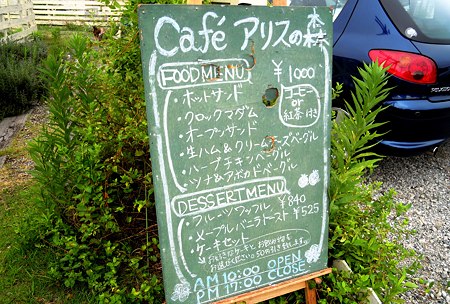 Café アリスの森
FOOD MENU ¥1000
・ホットサンド
コーヒー
or
紅茶付き
・クロックマダム
・オープンサンド
・生ハム&クリームチーズベーグル
・ハーブチキンベーグル
・ツナ&アボカドベーグル
DESSERT MENU
・フルーツワッフル ¥840
・メープルバニラトースト ¥525
・ケーキセット
50円引き致します
AM 10:00 OPEN
PM 17:00 CLOSE